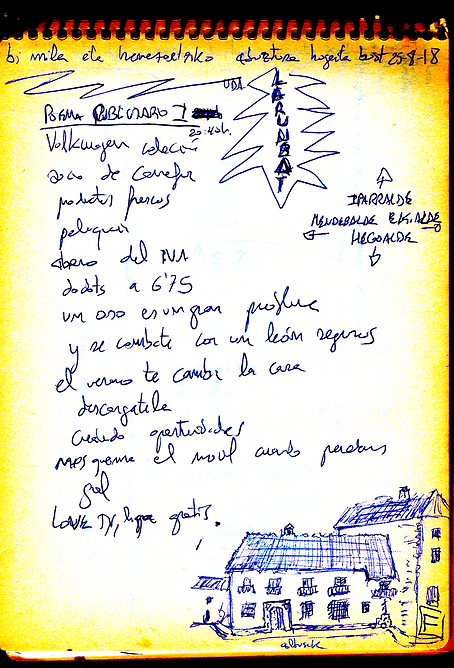 bi mila eta hemezortziko abuztua hogeita bost 25-8-18
UDA
LARUNBAT
POEMA PUBLICITARIO I
20:40h.
Volkswagen colección
socio de Carrefur
productos frescos
peluquería
abono del IVA
dodots a 6'75
un oso es un gran
y se combate con un león seguros
el verano te cambia la cara
descargatela
creando oportunidades
el movil cuando perdamos
LOVE TV, liga gratis.
IPARRALDE
MENDEBALDE EKIALDE
HEGOALDE